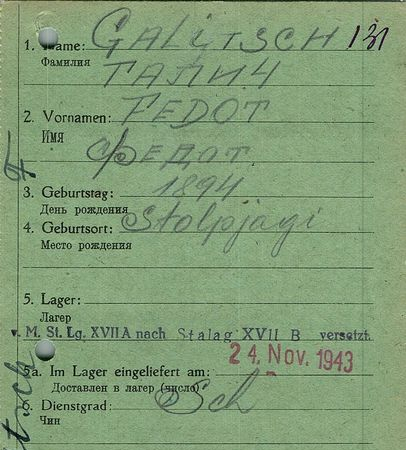 1. Name: GALITSCH 131
Фамилия ГАЛИЧ
2. Vornamen: FEDOT
Имя ФЕДОТ
3. Geburtstag: 1894
День рождения
4. Geburtsort: Stolpjagi
Место рождения
5. Lager:
Лагер
v. M. St. Lg. XVII A nach Stalag XVII B versetzt.
24. Nov. 1943
5a. Im Lager eingeliefert am:
Доставлен в лагер (число)
6. Dienstgrad: Sch
Чин